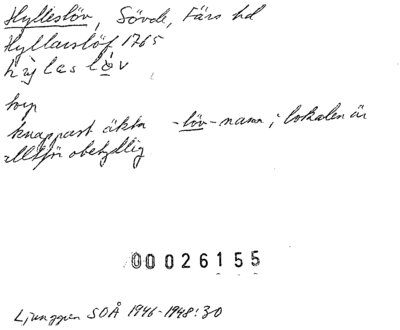 Hylleslöv, Sövde, Färs hd
Hyllarslöf 1765
hỳlesløv
torp
knappast äkta -löv-namn; lokalen är
alltför obetydlig
00026155
Ljunggren SOÅ 1946-1948:30